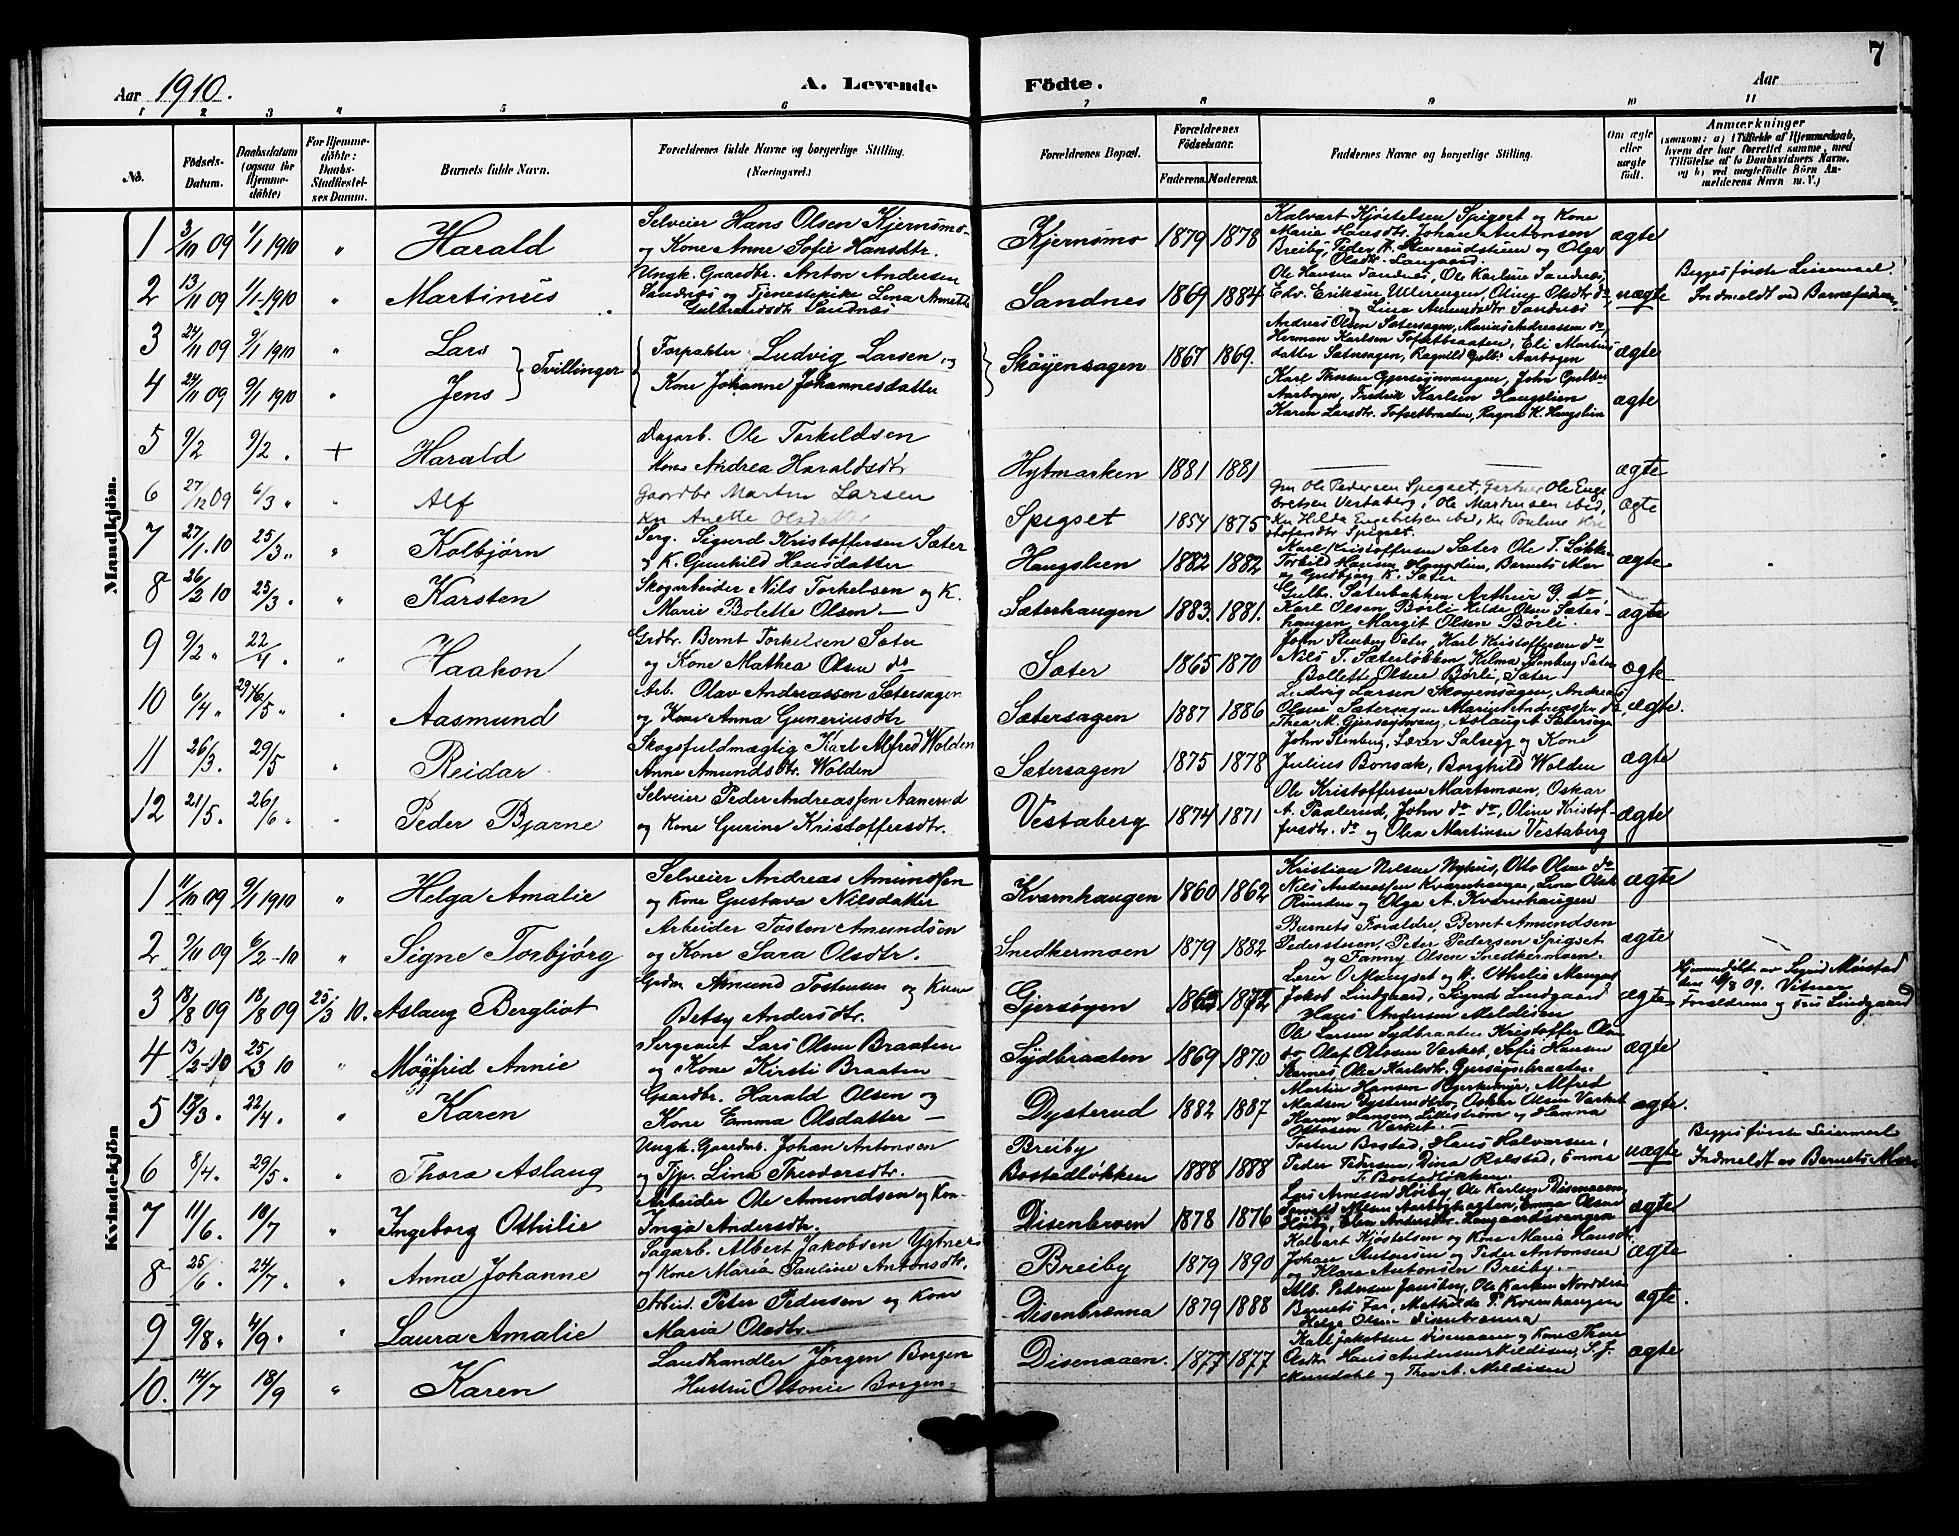 7
Aar 1910.
A. Levende Födte.
Aar
1 2 3 4 5 6 7 8 9 10 11
No.
Födsels-Datum.
Daabsdatum (ogsaa for Hjemme-döbte)
For Hjemme-döbte: Daabs-Stadfæstel-ses Datum.
Barnets fulde Navn.
Forældrenes fulde Navne og borgerlige Stilling. (Næringsvei.)
Forældrenes Bopæl.
Forældrenes Födselsaar.
Faderens. Moderens.
Faddernes Navne og borgerlige Stilling.
Om ægte eller uægte födt.
Anmærkninger
(saasom: a) i Tilfælde af Hjemmedaab,
hvem der har forrettet samme, med
Tilföielse af to Daabsvidners Navne,
og b) ved uægtefödte Börn An-
melderens Navn m. V.)
Mandkjön.
1 3/10 09 1/1 1910 " Harald
Selveier Hans Olsen Kjernsmo
og Kone Anne Sofie Hansdtr.
Kjernsmo 1879 1878
Kalvart Kjøstelsen Spigset og Kone
Marie Hansdtr. Johan Antonsen
Breiby, Peder og Olga
Olsdtr. Langaard
ægte
2 13/11 09 1/1 1910 " Martinius
Ungk. Gaardbr. Anton Andersen
Sandnes og Tjenestepike Lena Annette
Gulbrandsdtr Sandnes
Sandnes 1869 1884
Ole Hansen Sandnes, Ole Karlsen Sandnes,
Edv. Eriksen Ulleringen, Oline Olsdtr do
og Lina Amundsdtr Sandnes
uægte
Begges første Leiermaal.
Indmeldt ved Barnefaderen
3 24/11 09 9/1 1910 " Lars
4 24/11 09 9/1 1910 " Jens
Tvillinger
Forpakter Ludvig Larsen og
Kone Johanne Johannesdatter
Skøyensagen 1867 1869.
Andreas Olsen Sætersagen, Marius Andreassen do
Herman Karlsen Tofsetbraaten, Eli Martins
datter Sætersagen, Ragnild Gulbr. Aarbogen
ægte
Karl Thorsen Gjersøyenvangen, John Gulbr.
Aarbogen, Fredrik Karlsen Haugslien
Karen Larsdtr. Tofsetbraaten, Ragna K. Haugslien
ægte
5 9/2 9/2 . + Harald
Dagarb. Ole Torkeldsen
Kone Andrea Haraldsdtr
Hytmarken 1881 1881
ægte
6 27/12 09 6/3 " " Alf
Gaardbr Martin Larsen
Ku Anette Olsdatter
Spigset 1854 1875
Gm Ole Pedersen Spigset, Gartner Ole Enge
bretsen Vestaberg, Ole Martinsen ibid,
Ku Hilda Engebretsen ibid, Ku Pauline Kri
stofersdtr Spigset.
ægte
7 27/1.10 25/3 " " Kolbjørn
Serg. Sigurd Kristoffersen Sæter
og K. Gunhild Hansdatter
Haugslien 1882 1882
Karl Kristoffersen Sæter Ole T. Løkken
Torbild Hansen Haugslien, Barnets Mor
og Gudbjørg K. Sæter
ægte
8 26/2 10 25/3. " Karsten
Skogarbeider Nils Torkelsen og K.
Marie Bolette Olsen
Sæterhaugen 1883. 1881.
Gulb. Sæterbakken Arthur G. do
Karl Olsen Børli Hilda Olsen Sæter
haugen, Margit Olsen Børli.
ægte
9 9/2 " 22/4. " Haakon
Grdbr. Bernt Torkelsen Sæter
og Kone Mathea Olsen do
Sæter 1865 1870
John Stenberg Sæter, Karl Kristoffersen do
Nils T. Sæterløkken, Hilma Stenberg Sæter
Bollette Olsen Børli, Sæter
ægte
10 6/4 " 5 " " Aasmund
Arb. Olav Andreassen Sætersagen
og Kone Anna Guneriusdtr
Sætersagen 1887 1886
Ludvig Larsen Skøyensagen, Andreas
Olsen Sætersagen Marius Andreassen do,
Thea M. Gjersøyenvang, Aslaug A. Sætersagen
ægte.
11 26/3. 29/5 " Reidar
Skogsfuldmægtig Karl Alfred Wolden
Anne Amundsdtr. Wolden
Sætersagen 1875 1878
John Stenberg, Lærer Salsegg og Kone
Julius Bonsak, Borghild Wolden
ægte
12 21/5. 26/6. " Peder Bjarne
Selveier Peder Andreassen Aanerud
og Kone Gurine Kristoffersdtr.
Vestaberg 1874 1871
Ole Kristoffersen Martinsen, Oskar
A. Paalerud, John do do, Oline Kristof-
fersdtr. do og Olea Martinsen Vestaberg
ægte
Kvindekjön
1 11/10 09 9/1 1910 " Helga Amalie
Selveier Andreas Amundsen
og Kone Gustava Nilsdatter
Kværnhaugen 1860 1862
Kristian Nilsen Nyhus, Otto Olsen do
Nils Andreassen Kværnhaugen, Lina Olsd.
Runden og Olga A. Kværnhaugen
ægte
2 9/11 09 6/2-10 " Signe Torbjørg
Arbeider Tosten Amundsen
og Kone Sara Olsdtr.
Snedkermoen 1879 1882
Barnets Forældre, Bernt Amundsen
Pederstuen, Peter Pedersen Spigset
og Fanny Olsen Snedkermoen.
ægte
3 18/8 09 18/8 09 25/3 10. Aslaug Bergliot
Grdm Amund Tostensen og Kone
Betsy Andersdtr.
Gjersøyen 1865 1872
Lærer O Mangset og K. Othilie Mangset
Jakob Lindgaard, Sigrid Lindgaard
Hans Andersen Meldisen
ægte
Hjemmedøbt av Sigrid Mørstad
den 18/8 09. Vitner
Forældrene og Fru Lindgaard
4 13/2-10 25/3 10 " Møyfrid Annie
Sergeant Lars Olsen Braaten
og Kone Kirsti Braaten
Sydbraaten 1869 1870
Ole Larsen Sydbraaten Kristoffer Olsen
do Olaf Olsson Varket, Sofie Hansen
Olea Karlsdtr. Gjersøyenbraaten
ægte
5 18/3. 22/4. " Karen
Gaardbr. Harald Olsen og
Kone Emma Olsdatter
Dysterud 1882 1887
Martin Hansen Bjerkemyr, Alfred
Madsen Dysterudbro, Oskar Olsen Varket
Karen Hansen, Lillestrøm og Hanna
Ottosen Varket.
ægte.
6 8/4. 29/5. " Thora Aslaug
Ungk. Gaardbr. Johan Antonsen
og Tjp. Lina Theodorsdtr.
Breiby
Bostadløkken 1888 1888
Tosten Bostad, Hans Halvorsen,
Peder Pedersen, Dina Rolstad, Emma
T. Bostadløkken.
uægte
Begges første Leiermaal
Indmeldt av Barnets Mor
7 11/6. 10/7 " Ingeborg Othilie
Arbeider Ole Amundsen og Kone
Inga Andersdtr.
Disenbroen 1878 1876
Lars Arnesen Høiby, Ole Karlsen Disenaaen
Emma Olsen
Høiby, Elen Andersdtr. Haugaardsvangen
ægte
8 25/6. 24/7. " Anna Johanne
Sagarb. Albert Jakobsen Ygtnes
og Kone Maria Pauline Antonsdtr.
Breiby 1879 1890
Kalvart Kjøstelsen og Kone Maria Hansdtr.
Johan Antonsen og Peder Antonsen
og Klara Antonsen Breiby.
ægte
9 9/8. 4/9. " Laura Amalie
Arbeid. Peter Pedersen og Kone
Maria Olsdtr.
Disenbrænna 1879 1888
Alb. Petersen Jansberg, Ole Karlsen Norddisen
Barnets Far, Mathilde P. Kværnhaugen
Helga Olsen Disenbrænna
ægte.
10. 14/7 18/9 " Karen
Landhandler Jørgen Borgen
Hustru Ottonie Borgen
Disenaaen. 1877 1877
Karl Jakobsen Disenaaen og Kone Thora
Olsdtr Hans Andersen Meldisen, S. J.
Mundahl og Thea A. Meldisen
ægte